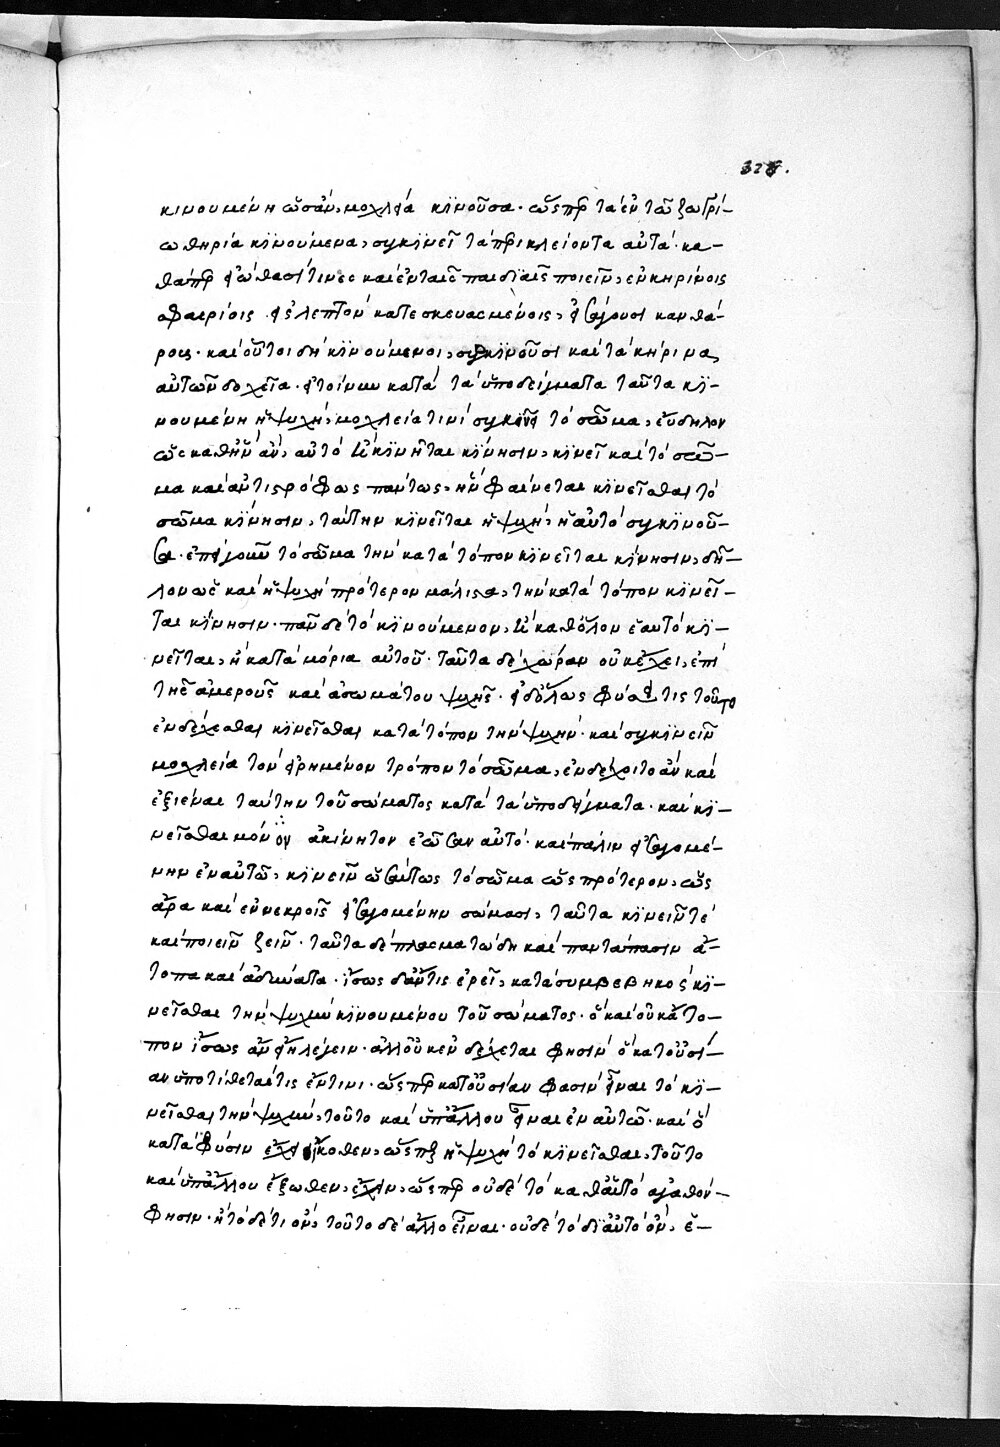 328.
κινουμένη ὡσὰν μοχλεία κϊνοῦσα· ὥσπερ τὰ ἐν τῶ ζωτρί-
ω θηρία κϊνούμενα, συγκϊνεῖ τὰ περικλείοντα αὐτά· κα-
θάπερ εἰώθασί τινες καὶ ἐν ταῖς παιδϊαῖς ποιεῖν, ἐν κηρίνοις
σφαιρίοις εἰς λεπτὸν κατεσκευασμένοις, εἰσάγουσι κανθά-
ρους· καὶ οὗτοι δὴ κϊνούμενοι, συγκϊνοῦσι καὶ τὰ κήρινα,
αὐτῶν δοχεῖα· εἰ τοίνυν κατὰ τὰ ὑποδείγματα ταῦτα κϊ-
νουμένη ἡ ψυχὴ, μοχλεία τινὶ συγκινεῖ τὸ σῶμα, εὔδηλον
ὡς καθ' ἣν ἂν, αὐτὸ κϊνῆται κϊνησιν, κϊνεῖ καὶ τὸ σῶ-
μα καὶ ἀντιστρόφως πάντως, ἣν φαίνεται κϊνεῖσθαι τὸ
σῶμα κϊνησιν, ταύτην κϊνεῖται ἡ ψυχὴ, ἡ αὐτὸ συγκϊνοῦ-
σα· ἐπεὶ γοῦν τὸ σῶμα τὴν κατὰ τόπον κϊνεῖται κίνησιν, δῆ-
λον ὡς καὶ ἡ ψυχὴ πρότερον μάλιστα, τὴν κατὰ τόπον κϊνεῖ-
ται κϊνησιν· πᾶν δὲ τὸ κϊνούμενον, ἢ καθόλον ἑαυτὸ κϊ-
νεῖται, ἢ κατὰ μόρια αὐτοῦ· ταῦτα δὲ χώραν οὐκ ἔχει, ἐπὶ
τῆς ἀμεροῦς καὶ ἀσωμάτου ψυχῆς· εἰ δ' ὅλως τις τοῦτο
ἐνδέχεσθαι κϊνεῖσθαι κατὰ τόπον τὴν ψυχὴν· καὶ συγκϊνεῖν
μοχλεία τὸν εἰρημένον τρόπον τὸ σῶμα, ἐνδέχοιτο ἂν καὶ
ἐξιέναι ταύτην τοῦ σώματος κατὰ τὰ ὑποδείγματα· καὶ κϊ-
νεῖσθαι μὲν ἀκίνητον ἐῶσαν αὐτό· καὶ πάλιν εἰσαγομέ-
νην ἐν αὐτῶ, κϊνεῖν ὡσαύτως τὸ σῶμα ὡς πρότερον, ὡς
ἄρα καὶ ἐν νεκροῖς εἰσαγομένην σώμασι, ταῦτα κϊνεῖν τὲ
καὶ ποιεῖν ζεῖν· ταῦτα δὲ πλασματώδη καὶ παντάπασιν ἄ-
τοπα καὶ ἀδύνατα· ἴσως δ' ἄν τις ἐρεῖ, κατὰ συμβεβηκὸς κϊ-
νεῖσθαι τὴν ψυχὴν κϊνουμένου τοῦ σώματος· ὃ καὶ οὐκ ἄτο-
πον ἴσως ἂν εἴη λέγειν· ἀλλ' οὐκ ἐνδέχεται φησὶν ὃ κατ' οὐσί-
αν ὑποτίθεταί τις ἔν τινι· ὥσπερ κατ' οὐσίαν φασὶν εἶναι τὸ κϊ-
νεῖσθαι τὴν ψυχὴν, τοῦτο καὶ ὑπ' ἄλλου εἶναι ἐν αὐτῶ· καὶ ὃ
κατὰ φύσιν ἔχει οἴκοθεν, ὥσπερ ἡ ψυχὴ τὸ κϊνεῖσθαι, τοῦτο
καὶ ὑπ' ἄλλου ἔξωθεν, ἔχειν, ὥσπερ οὐδὲ τὸ καθ' αὑτὸ ἀγαθόν-
φησιν· ἢ τὸ δέ τι ὂν, τοῦτο δὲ ἄλλο εἶναι· οὐδὲ τὸ δι' αὑτὸ ὂν, ἕ-